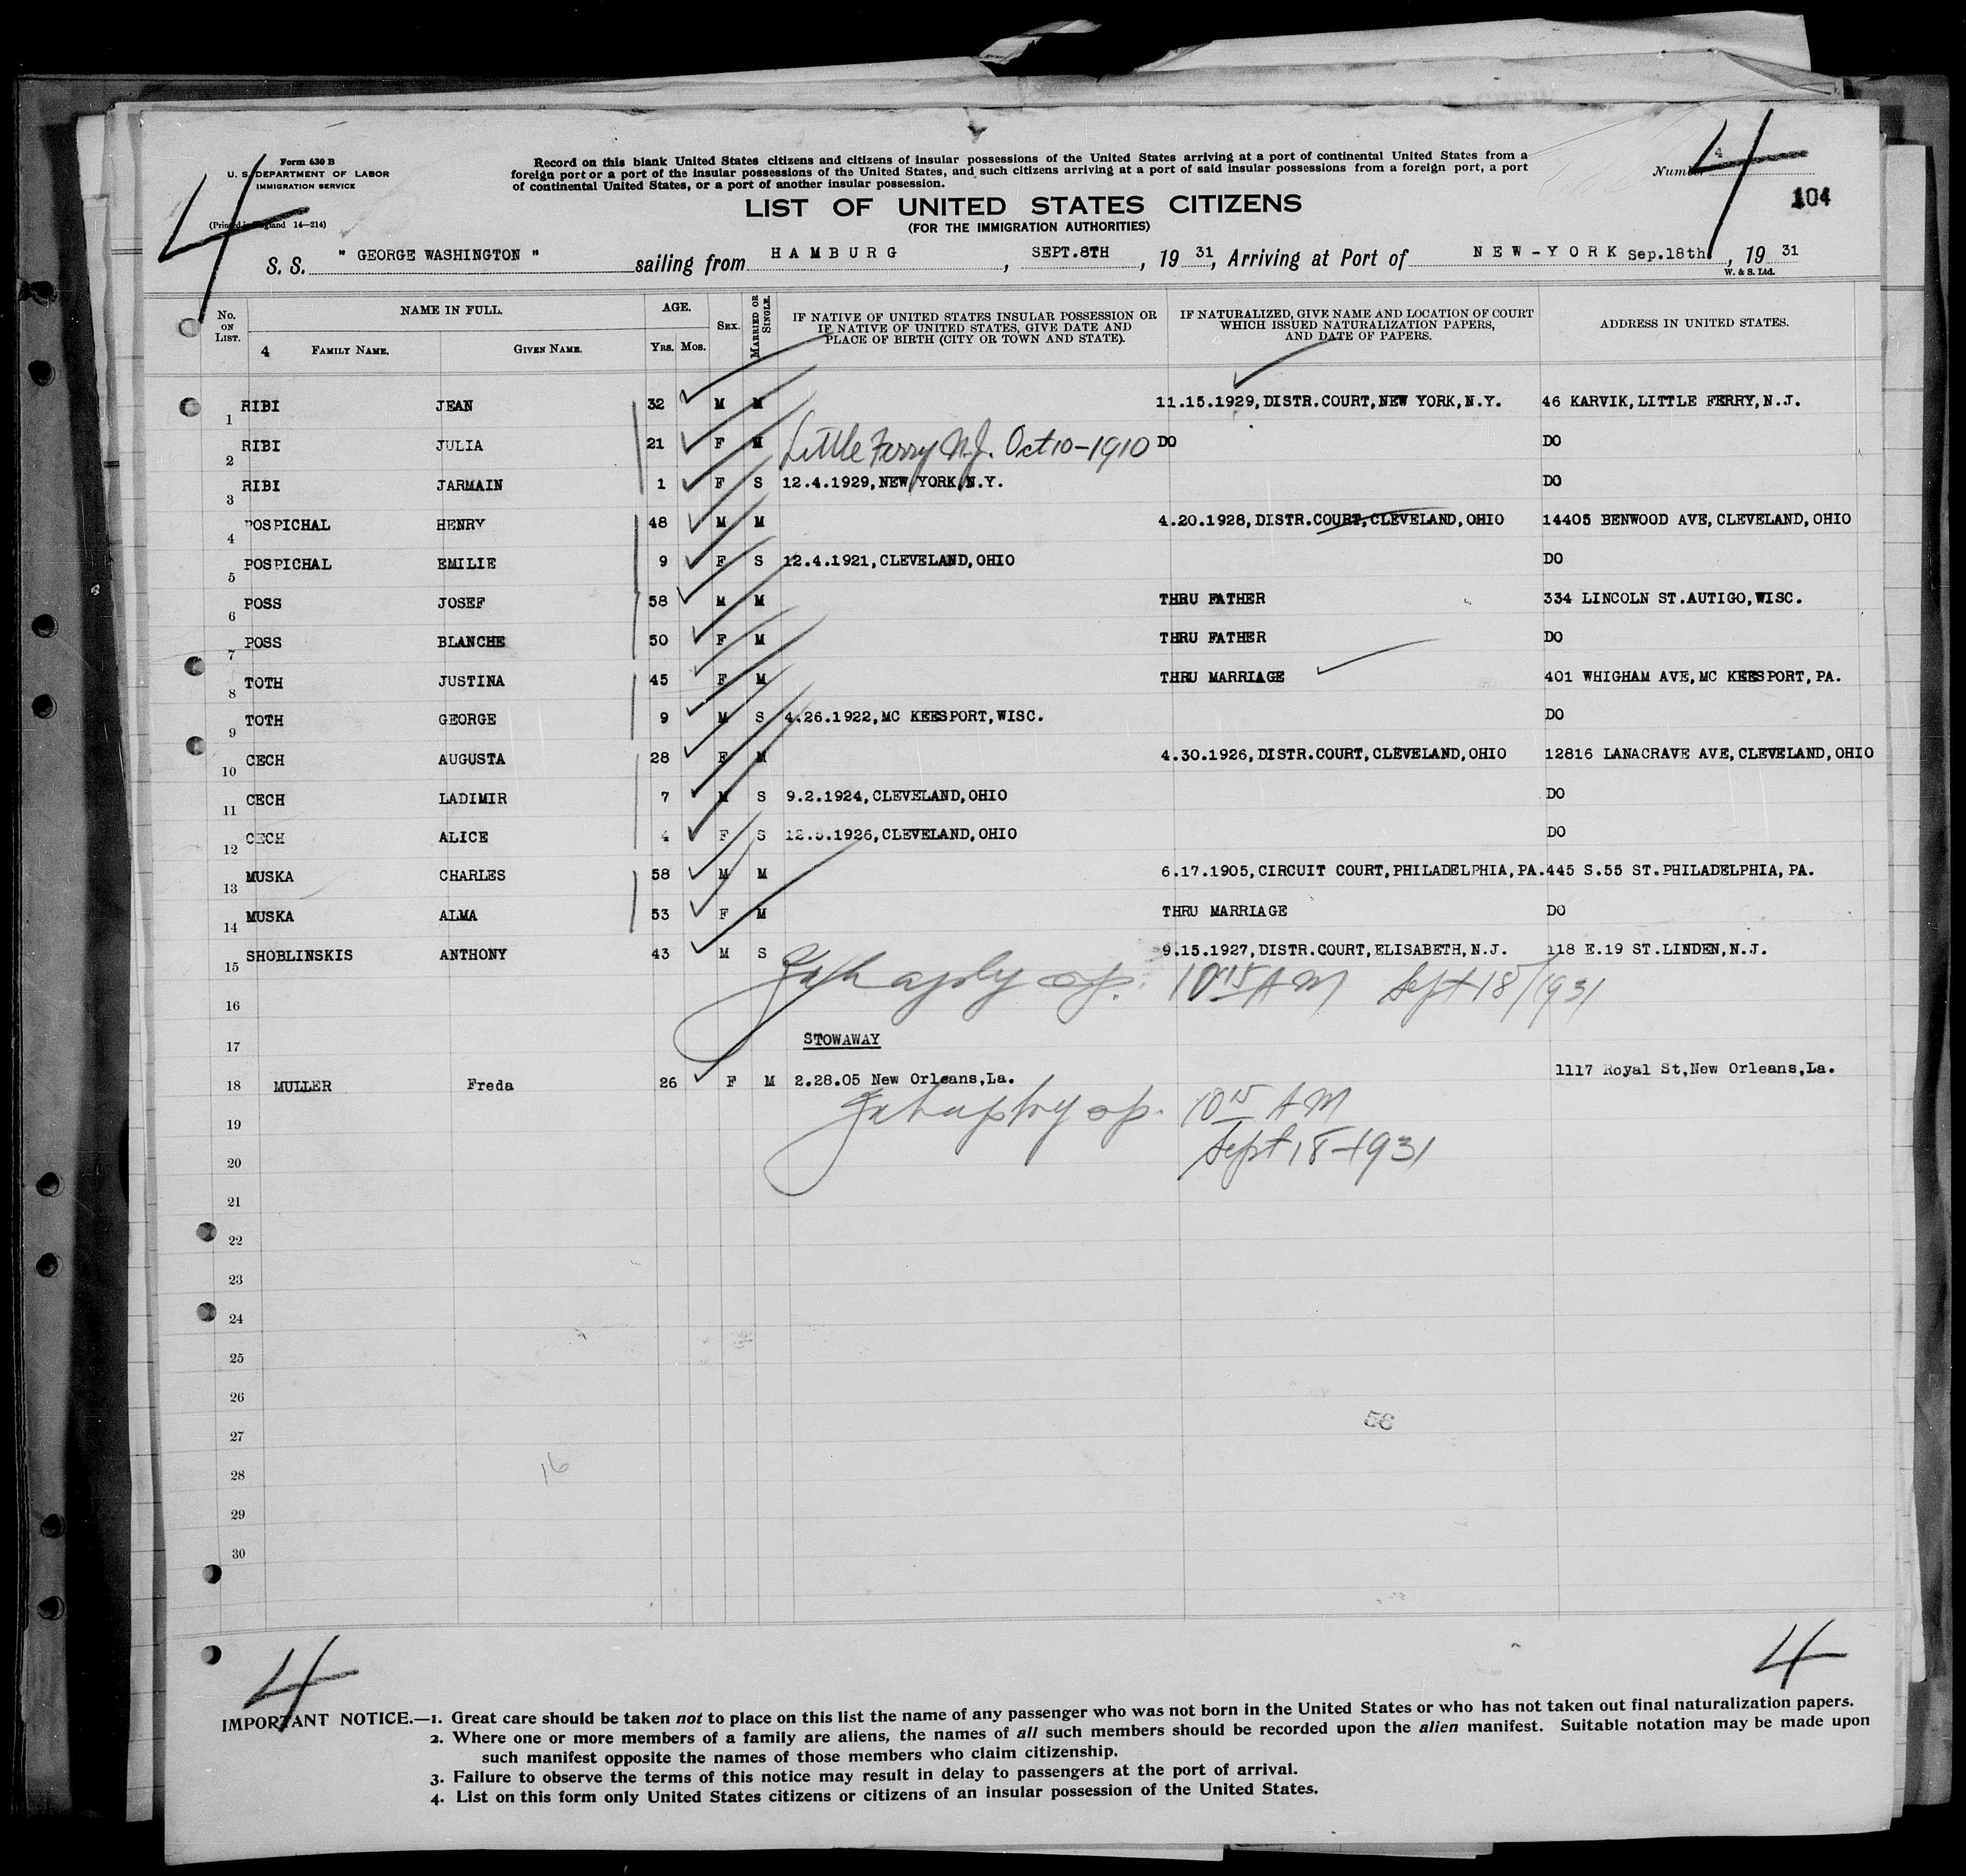 Form 630 B
U. S. DEPARTMENT OF LABOR
IMMIGRATION SERVICE
(Printed in England 14—214)
4
Record on this blank United States citizens and citizens of insular possessions of the United States arriving at a port of continental United States from a
foreign port or a port of the insular possessions of the United States, and such citizens arriving at a port of said insular possessions from a foreign port, a port
of continental United States, or a port of another insular possession.
Number 4
4
104
LIST OF UNITED STATES CITIZENS
(FOR THE IMMIGRATION AUTHORITIES)
S. S. " GEORGE WASHINGTON " sailing from HAMBURG, SEPT.8TH, 19 31, Arriving at Port of NEW-YORK Sep.18th, 19 31
W. & S. Ltd.
No. ON LIST. NAME IN FULL. AGE. SEX. MARRIED OR SINGLE. IF NATIVE OF UNITED STATES INSULAR POSSESSION OR IF NATIVE OF UNITED STATES, GIVE DATE AND PLACE OF BIRTH (CITY OR TOWN AND STATE). IF NATURALIZED, GIVE NAME AND LOCATION OF COURT WHICH ISSUED NATURALIZATION PAPERS, AND DATE OF PAPERS. ADDRESS IN UNITED STATES.
4 FAMILY NAME. GIVEN NAME. YRS. MOS.
1 RIBI JEAN 32 M M 11.15.1929,DISTR.COURT,NEW YORK,N.Y. 46 KARVIK,LITTLE FERRY,N.J.
2 RIBI JULIA 21 F M Little Ferry N.J. Oct 10-1910 DO DO
3 RIBI JARMAIN 1 F S 12.4.1929,NEW YORK,N.Y. DO
4 POSPICHAL HENRY 48 M M 4.20.1928,DISTR.COURT,CLEVELAND,OHIO 14405 BENWOOD AVE,CLEVELAND,OHIO
5 POSPICHAL EMILIE 9 F S 12.4.1921,CLEVELAND,OHIO DO
6 POSS JOSEF 58 M M THRU FATHER 334 LINCOLN ST.AUTIGO,WISC.
7 POSS BLANCHE 50 F M THRU FATHER DO
8 TOTH JUSTINA 45 F M THRU MARRIAGE 401 WHIGHAM AVE,MC KEESPORT,PA.
9 TOTH GEORGE 9 M S 4.26.1922,MC KEESPORT,WISC. DO
10 CECH AUGUSTA 28 F M 4.30.1926,DISTR.COURT,CLEVELAND,OHIO 12816 LANACRAVE AVE,CLEVELAND,OHIO
11 CECH LADIMIR 7 M S 9.2.1924,CLEVELAND,OHIO DO
12 CECH ALICE 4 F S CLEVELAND,OHIO DO
13 MUSKA CHARLES 58 M M 6.17.1905,CIRCUIT COURT,PHILADELPHIA,PA. 445 S.55 ST.PHILADELPHIA,PA.
14 MUSKA ALMA 53 F M THRU MARRIAGE DO
15 SHOBLINSKIS ANTHONY 43 M S 9.15.1927,DISTR.COURT,ELISABETH,N.J. 118 E.19 ST.LINDEN,N.J.
16 10 15 AM Sept 18/1931
17 STOWAWAY
18 MULLER Freda 26 F M 2.28.05 New Orleans,La. 1117 Royal St,New Orleans,La.
19 10 15 AM
20 Sept 18-1931
21
22
23
24
25
26
56
27
28 16
29
30
4
4
IMPORTANT NOTICE.—1. Great care should be taken not to place on this list the name of any passenger who was not born in the United States or who has not taken out final naturalization papers.
2. Where one or more members of a family are aliens, the names of all such members should be recorded upon the alien manifest. Suitable notation may be made upon
such manifest opposite the names of those members who claim citizenship.
3. Failure to observe the terms of this notice may result in delay to passengers at the port of arrival.
4. List on this form only United States citizens or citizens of an insular possession of the United States.